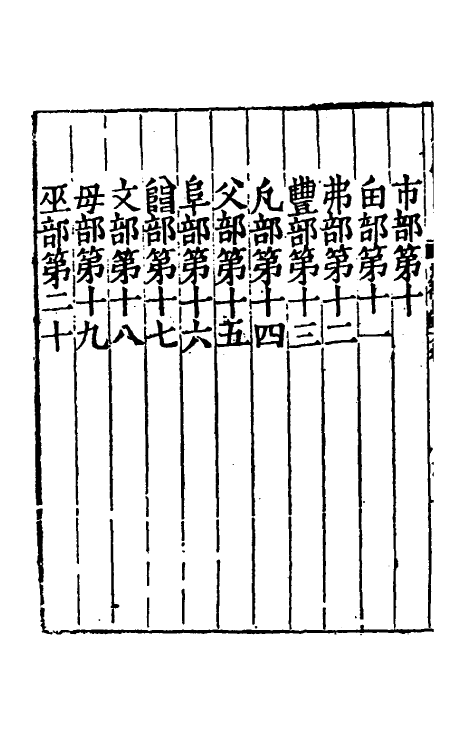 市部第十
甶部第十一
弗部第十二
豐部第十三
凡部第十四
父部第十五
阜部第十六
部第十七
文部第十八
毋部第十九
巫部第二十